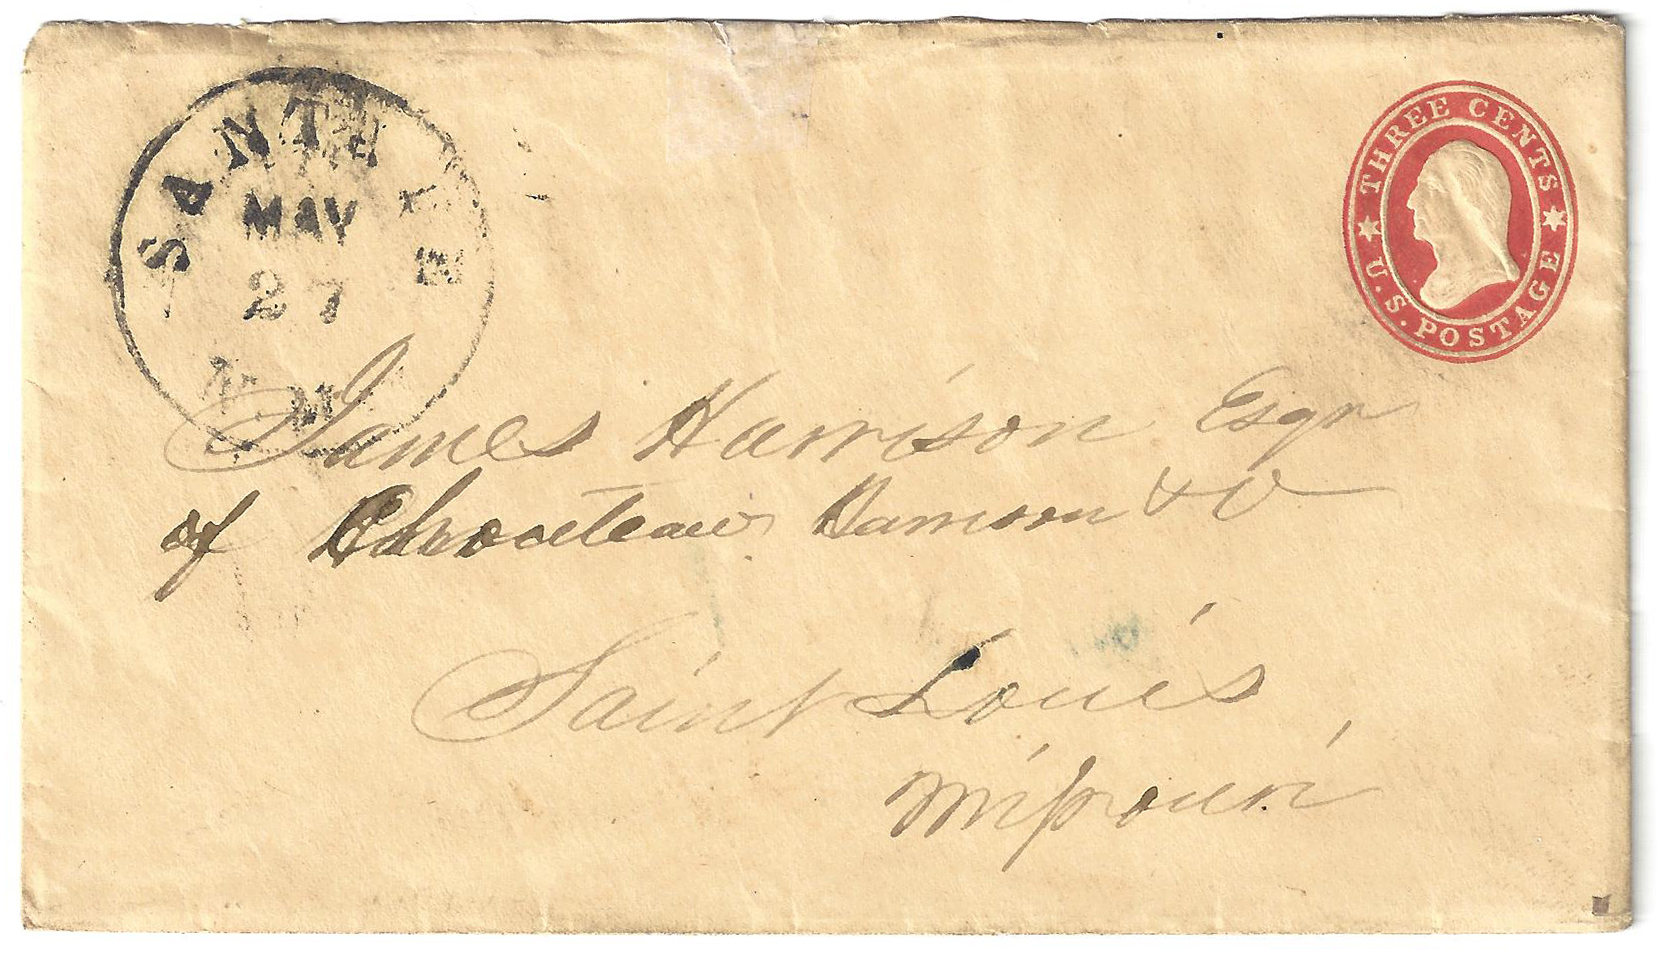 SANTA FE
MAY
27
N.M.
THREE CENTS
U.S. POSTAGE
James Harrison Esqr
of Chouteau Harrison & Co
Saint Louis
Missouri